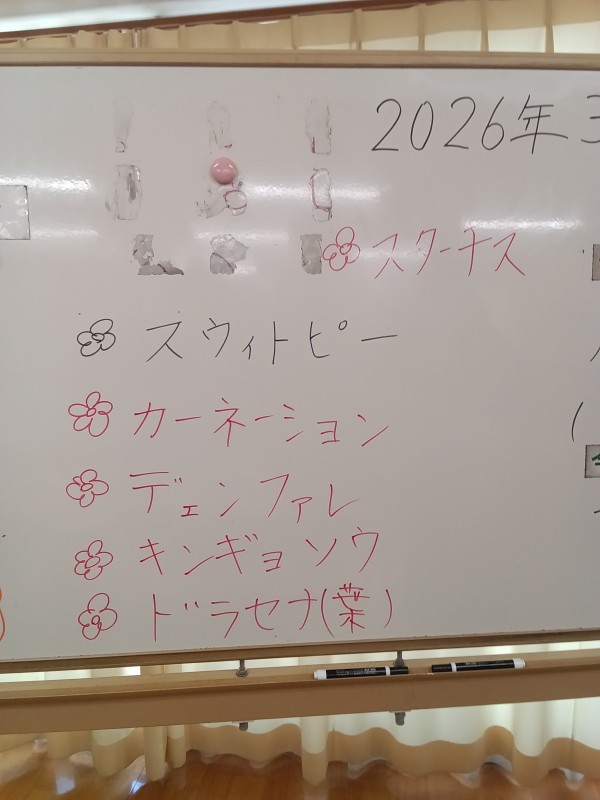 2026年3
スターチス
スウィトピー
カーネーション
デェンファレ
キンギョソウ
ドラセナ(葉)